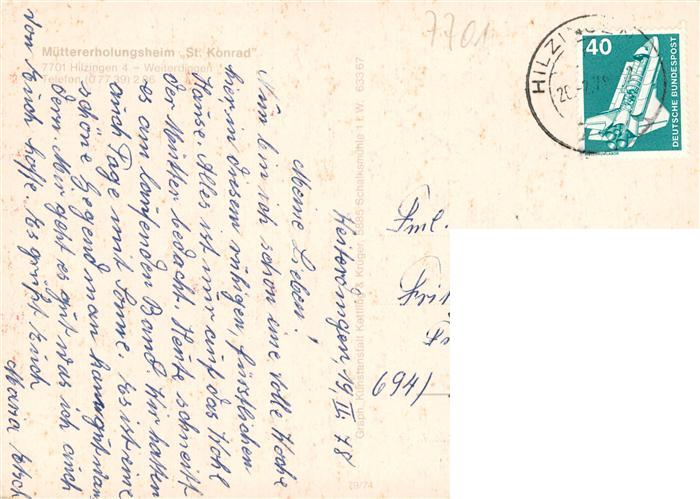 Müttererholungsheim „St. Konrad"
7701 Hilzingen 4 – Weiterdingen
Telefon (0 77 39) 2 86
7701
HILZINGEN
40
DEUTSCHE BUNDESPOST
Weiterdingen, 19. II. 78
Meine Lieben!
Nun bin ich schon eine volle Woche
hier in diesem ruhigen, fürstlichen
Hause. Alles ist nur auf das Wohl
der Mütter bedacht. Heute schneit
es am laufenden Band. Wir hatten
auch Tage mit Sonne. Es ist eine
schöne Gegend man kann gut wan
dern. Mir geht es gut was ich auch
von Euch hoffe. Es grüßt Euch
Maria
Graph. Kunstanstalt Kettling & Krüger, 5885 Schalksmühle 1 i. W. 63367
79/74
Fml.
694/